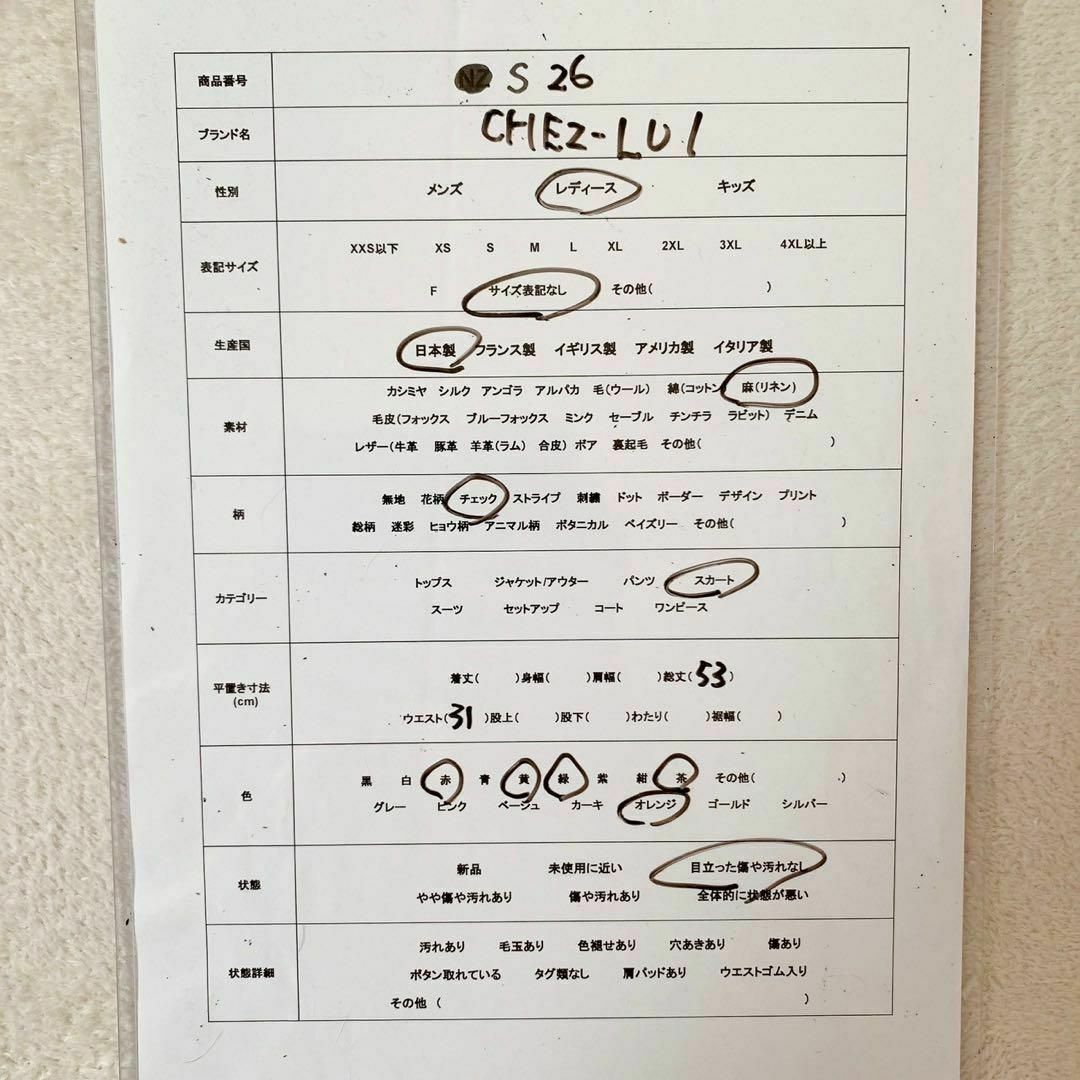 商品番号 NZ S 26
ブランド名 CHEZ-LUI
性別 メンズ レディース キッズ
XXS以下 XS S M L XL 2XL 3XL 4XL以上
表記サイズ
F サイズ表記なし その他( )
生産国 日本製 フランス製 イギリス製 アメリカ製 イタリア製
カシミヤ シルク アンゴラ アルパカ 毛(ウール) 綿(コットン) 麻(リネン)
素材 毛皮(フォックス ブルーフォックス ミンク セーブル チンチラ ラビット) デニム
レザー(牛革 豚革 羊革(ラム) 合皮) ボア 裏起毛 その他( )
無地 花柄 チェック ストライプ 刺繍 ドット ボーダー デザイン プリント
柄
総柄 迷彩 ヒョウ柄 アニマル柄 ボタニカル ペイズリー その他( )
トップス ジャケット/アウター パンツ スカート
カテゴリー
スーツ セットアップ コート ワンピース
着丈( )身幅( )肩幅( )総丈(53)
平置き寸法
(cm)
ウエスト(31)股上( )股下( )わたり( )裾幅( )
黒 白 赤 青 黄 緑 紫 紺 茶 その他( )
色
グレー ピンク ベージュ カーキ オレンジ ゴールド シルバー
新品 未使用に近い 目立った傷や汚れなし
状態
やや傷や汚れあり 傷や汚れあり 全体的に状態が悪い
汚れあり 毛玉あり 色褪せあり 穴あきあり 傷あり
状態詳細 ボタン取れている タグ類なし 肩パッドあり ウエストゴム入り
その他 ( )